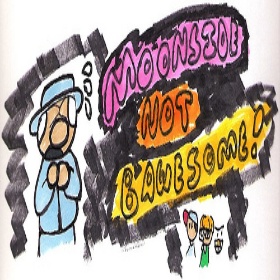 MOONSIDE
NOT
BAWESOME!